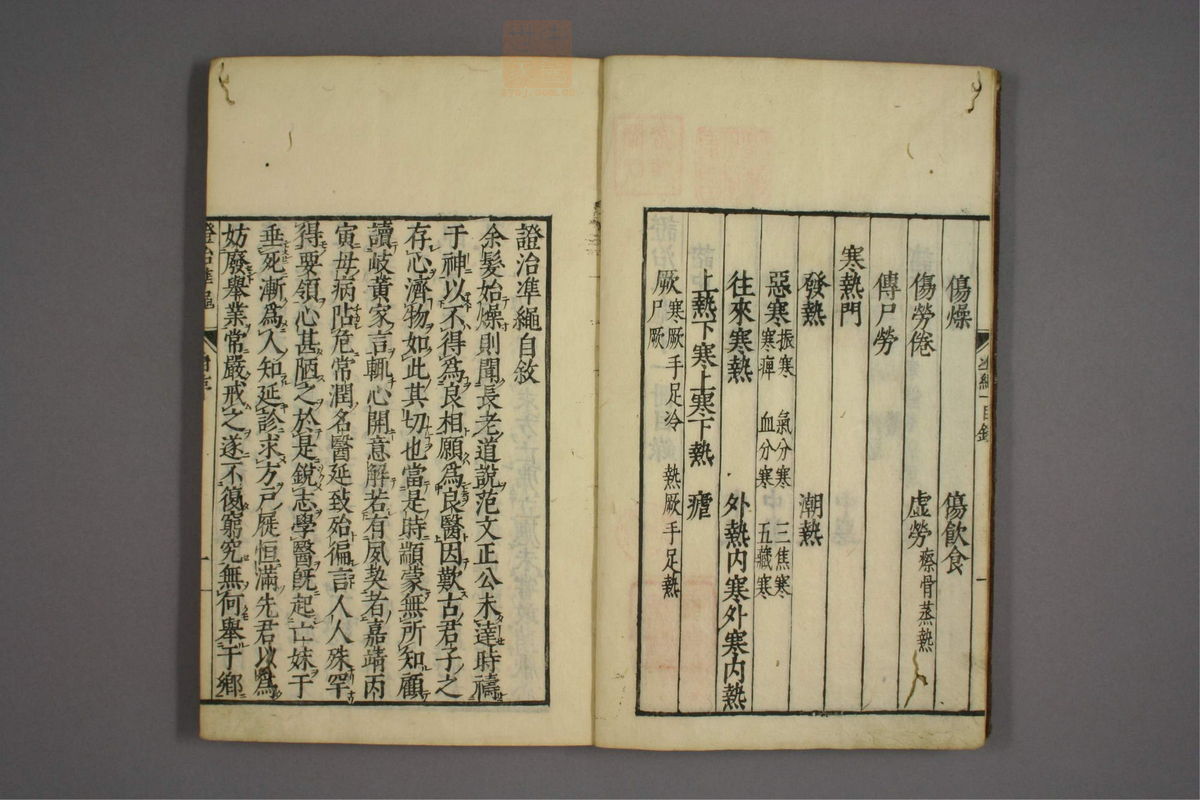 傷燥　傷飲食
傷勞倦　虛勞 瘵骨蒸熱
傳尸勞
寒熱門
發熱　潮熱
惡寒 振寒 氣分寒 三焦寒
寒痺 血分寒 五臟寒
往來寒熱　外熱内寒外寒内熱
上熱下寒上寒下熱　瘧
厥 寒厥手足冷 熱厥手足熱
尸厥
證治準繩自敘
余髮始燥則聞長老道說范文正公未達時禱
于神以不得爲良相願爲良醫因歎古君子之
存心濟物如此其切也當是時顓蒙無所知顧
讀岐黃家言輒心開意解若有夙契者嘉靖丙
寅母病阽危常潤名醫延致殆徧言人人殊罕
得要領心甚陋之於是銳志學醫旣起亡妹于
垂死漸爲人知延診求方戶屨恒滿先君以爲
妨廢舉業常嚴戒之遂不復窮究無何舉于鄉